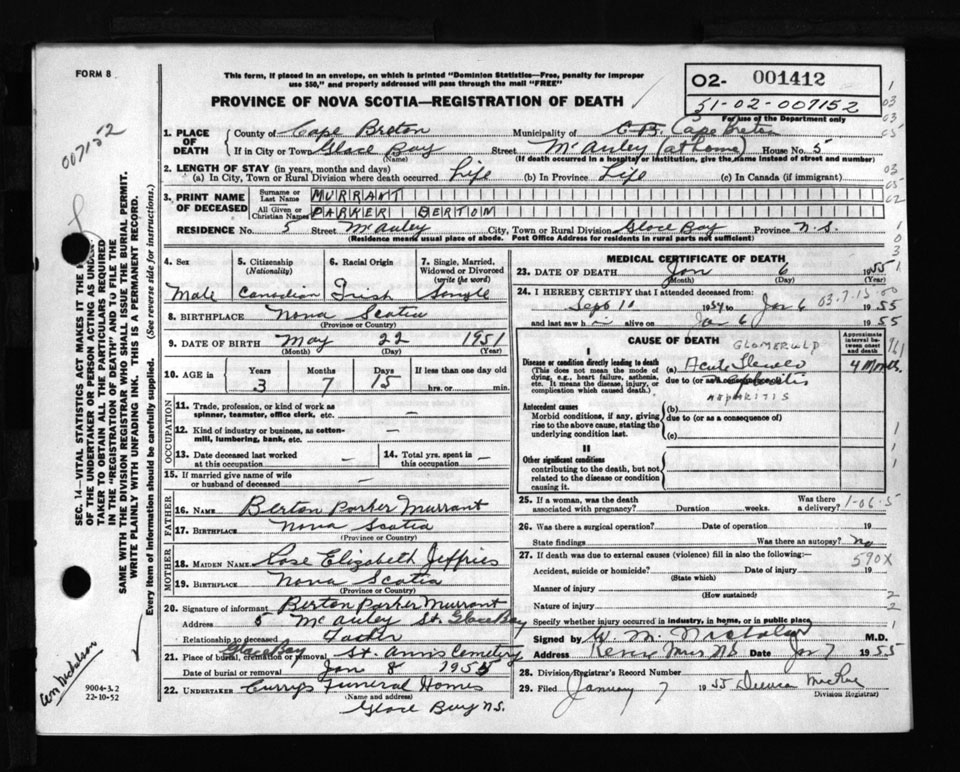 FORM 8
This form, if placed in an envelope, on which is printed "Dominion Statistics—Free, penalty for improper
use $50," and properly addressed will pass through the mail "FREE"
02- 001412
51-02-007152
For use of the Department only
PROVINCE OF NOVA SCOTIA—REGISTRATION OF DEATH
007152
1. PLACE OF DEATH
County of Cape Breton Municipality of C.B. Cape Breton
If in City or Town Glace Bay Street McAuley (at home) House No. 5
(Name) (If death occurred in a hospital or institution, give the name instead of street and number)
2. LENGTH OF STAY (in years, months and days)
(a) In City, Town or Rural Division where death occurred Life (b) In Province Life (c) In Canada (if immigrant)
3. PRINT NAME OF DECEASED
Surname or Last Name MURRANT
All Given or Christian Names PARKER BERTON
RESIDENCE No. 5 Street McAuley City, Town or Rural Division Glace Bay Province N.S.
(Residence means usual place of abode. Post Office Address for residents in rural parts not sufficient)
4. Sex 5. Citizenship (Nationality) 6. Racial Origin 7. Single, Married, Widowed or Divorced (write the word)
Male Canadian Irish Single
8. BIRTHPLACE Nova Scotia
(Province or Country)
9. DATE OF BIRTH May 22 1951
(Month) (Day) (Year)
10. AGE in Years Months Days If less than one day
3 7 15 hrs. or min.
OCCUPATION
11. Trade, profession, or kind of work as spinner, teamster, office clerk, etc. —
12. Kind of industry or business, as cotton-mill, lumbering, bank, etc. —
13. Date deceased last worked at this occupation — 14. Total yrs. spent in this occupation —
15. If married give name of wife or husband of deceased —
FATHER
16. Name Berton Parker Murrant
17. Birthplace Nova Scotia
(Province or Country)
MOTHER
18. Maiden Name Rose Elizabeth Jeffries
19. Birthplace Nova Scotia
(Province or Country)
20. Signature of informant Berton Parker Murrant
Address 5 McAuley St. Glace Bay
Relationship to deceased Father
Glace Bay
21. Place of burial, cremation or removal St. Ann's Cemetery
Date of burial or removal Jan 8 1955
22. UNDERTAKER Curry's Funeral Homes
(Name and address)
Glace Bay N.S.
MEDICAL CERTIFICATE OF DEATH
23. DATE OF DEATH Jan 6 1955
(Month) (Day) (Year)
24. I HEREBY CERTIFY that I attended deceased from:
Sept 10 1954 to Jan 6 1955
03-7-15-00
and last saw h im alive on Jan 6 1955
CAUSE OF DEATH
Approximate interval between onset and death
I
Disease or condition directly leading to death
(This does not mean the mode of dying, e.g., heart failure, asthenia, etc. It means the disease, injury, or complication which caused death.)
GLOMERULO
(a) Acute
4 Months
due to (or as a consequence of)
NEPHRITIS
Antecedent causes
Morbid conditions, if any, giving rise to the above cause, stating the underlying condition last.
(b)
due to (or as a consequence of)
(c)
II
Other significant conditions
contributing to the death, but not related to the disease or condition causing it.
25. If a woman, was the death associated with pregnancy? Duration weeks. Was there a delivery?
1-06-5
26. Was there a surgical operation? Date of operation 19
State findings Was there an autopsy? no
590X
27. If death was due to external causes (violence) fill in also the following:—
Accident, suicide or homicide? Date of injury 19
(State which)
Manner of injury
(How sustained)
Nature of injury
Specify whether injury occurred in industry, in home, or in public place
Signed by W. M. Nicholson M.D.
Address Date Jan 7 1955
28. Division Registrar's Record Number
29. Filed January 7 1955
Division Registrar
SEC. 14—VITAL STATISTICS ACT MAKES IT THE
OF THE UNDERTAKER OR PERSON ACTING AS UNDER-
TAKER TO OBTAIN ALL THE PARTICULARS REQUIRED
IN THE "REGISTRATION OF DEATH" AND TO FILE THE
SAME WITH THE DIVISION REGISTRAR WHO SHALL ISSUE THE BURIAL PERMIT.
WRITE PLAINLY WITH UNFADING INK. THIS IS A PERMANENT RECORD.
Every item of information should be carefully supplied. (See reverse side for instructions.)
9004-3.2
22-10-52